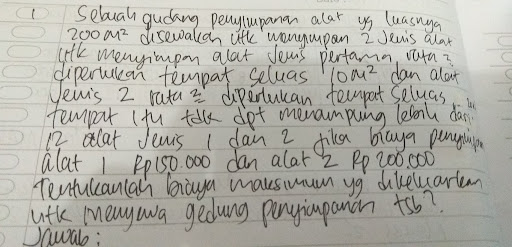 1 Sebuah gudang penyimpanan alat yg luasnya
200 m² disewakan utk menyimpan 2 Jenis alat
utk menyimpan alat Jenis pertama rata2
diperlukan tempat seluas 10 m² dan alat
Jenis 2 rata2 diperlukan tempat seluas
tempat itu tdk dpt menampung lebih dari
12 alat Jenis 1 dan 2 jika biaya
alat 1 Rp150.000 dan alat 2 Rp 200.000
Tentukanlah biaya maksimum yg dikeluarkan
utk menyewa gedung penyimpanan tsb?
Jawab :